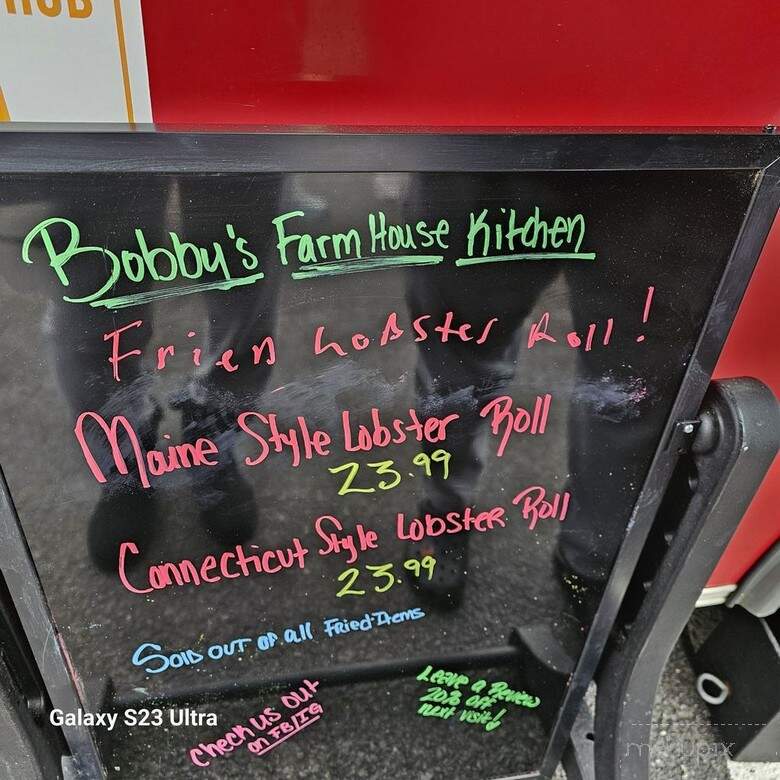 HUB
Bobby's Farm House Kitchen
Frien Lobster Roll!
Maine Style Lobster Roll
23.99
Connecticut Style Lobster Roll
23.99
Sold out of all Fried Items
Check us out
on FB/IG
Leave a Review
20% off
next visit!
Galaxy S23 Ultra